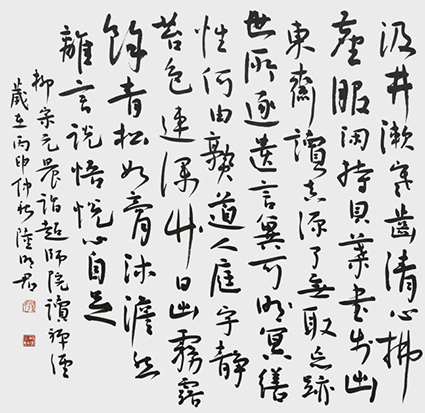 汲井漱寒齒清心拂
塵服閒持貝葉書步出
東齋讀真源了無取忘跡
世所逐遺言冀可明冥繕
性何由熟道人庭宇靜
苔色連深竹日出霧露
餘青松如膏沐澹然
離言說悟悅心自足
柳宗元晨詣超師院讀禪經
歲在丙申仲秋陸明君